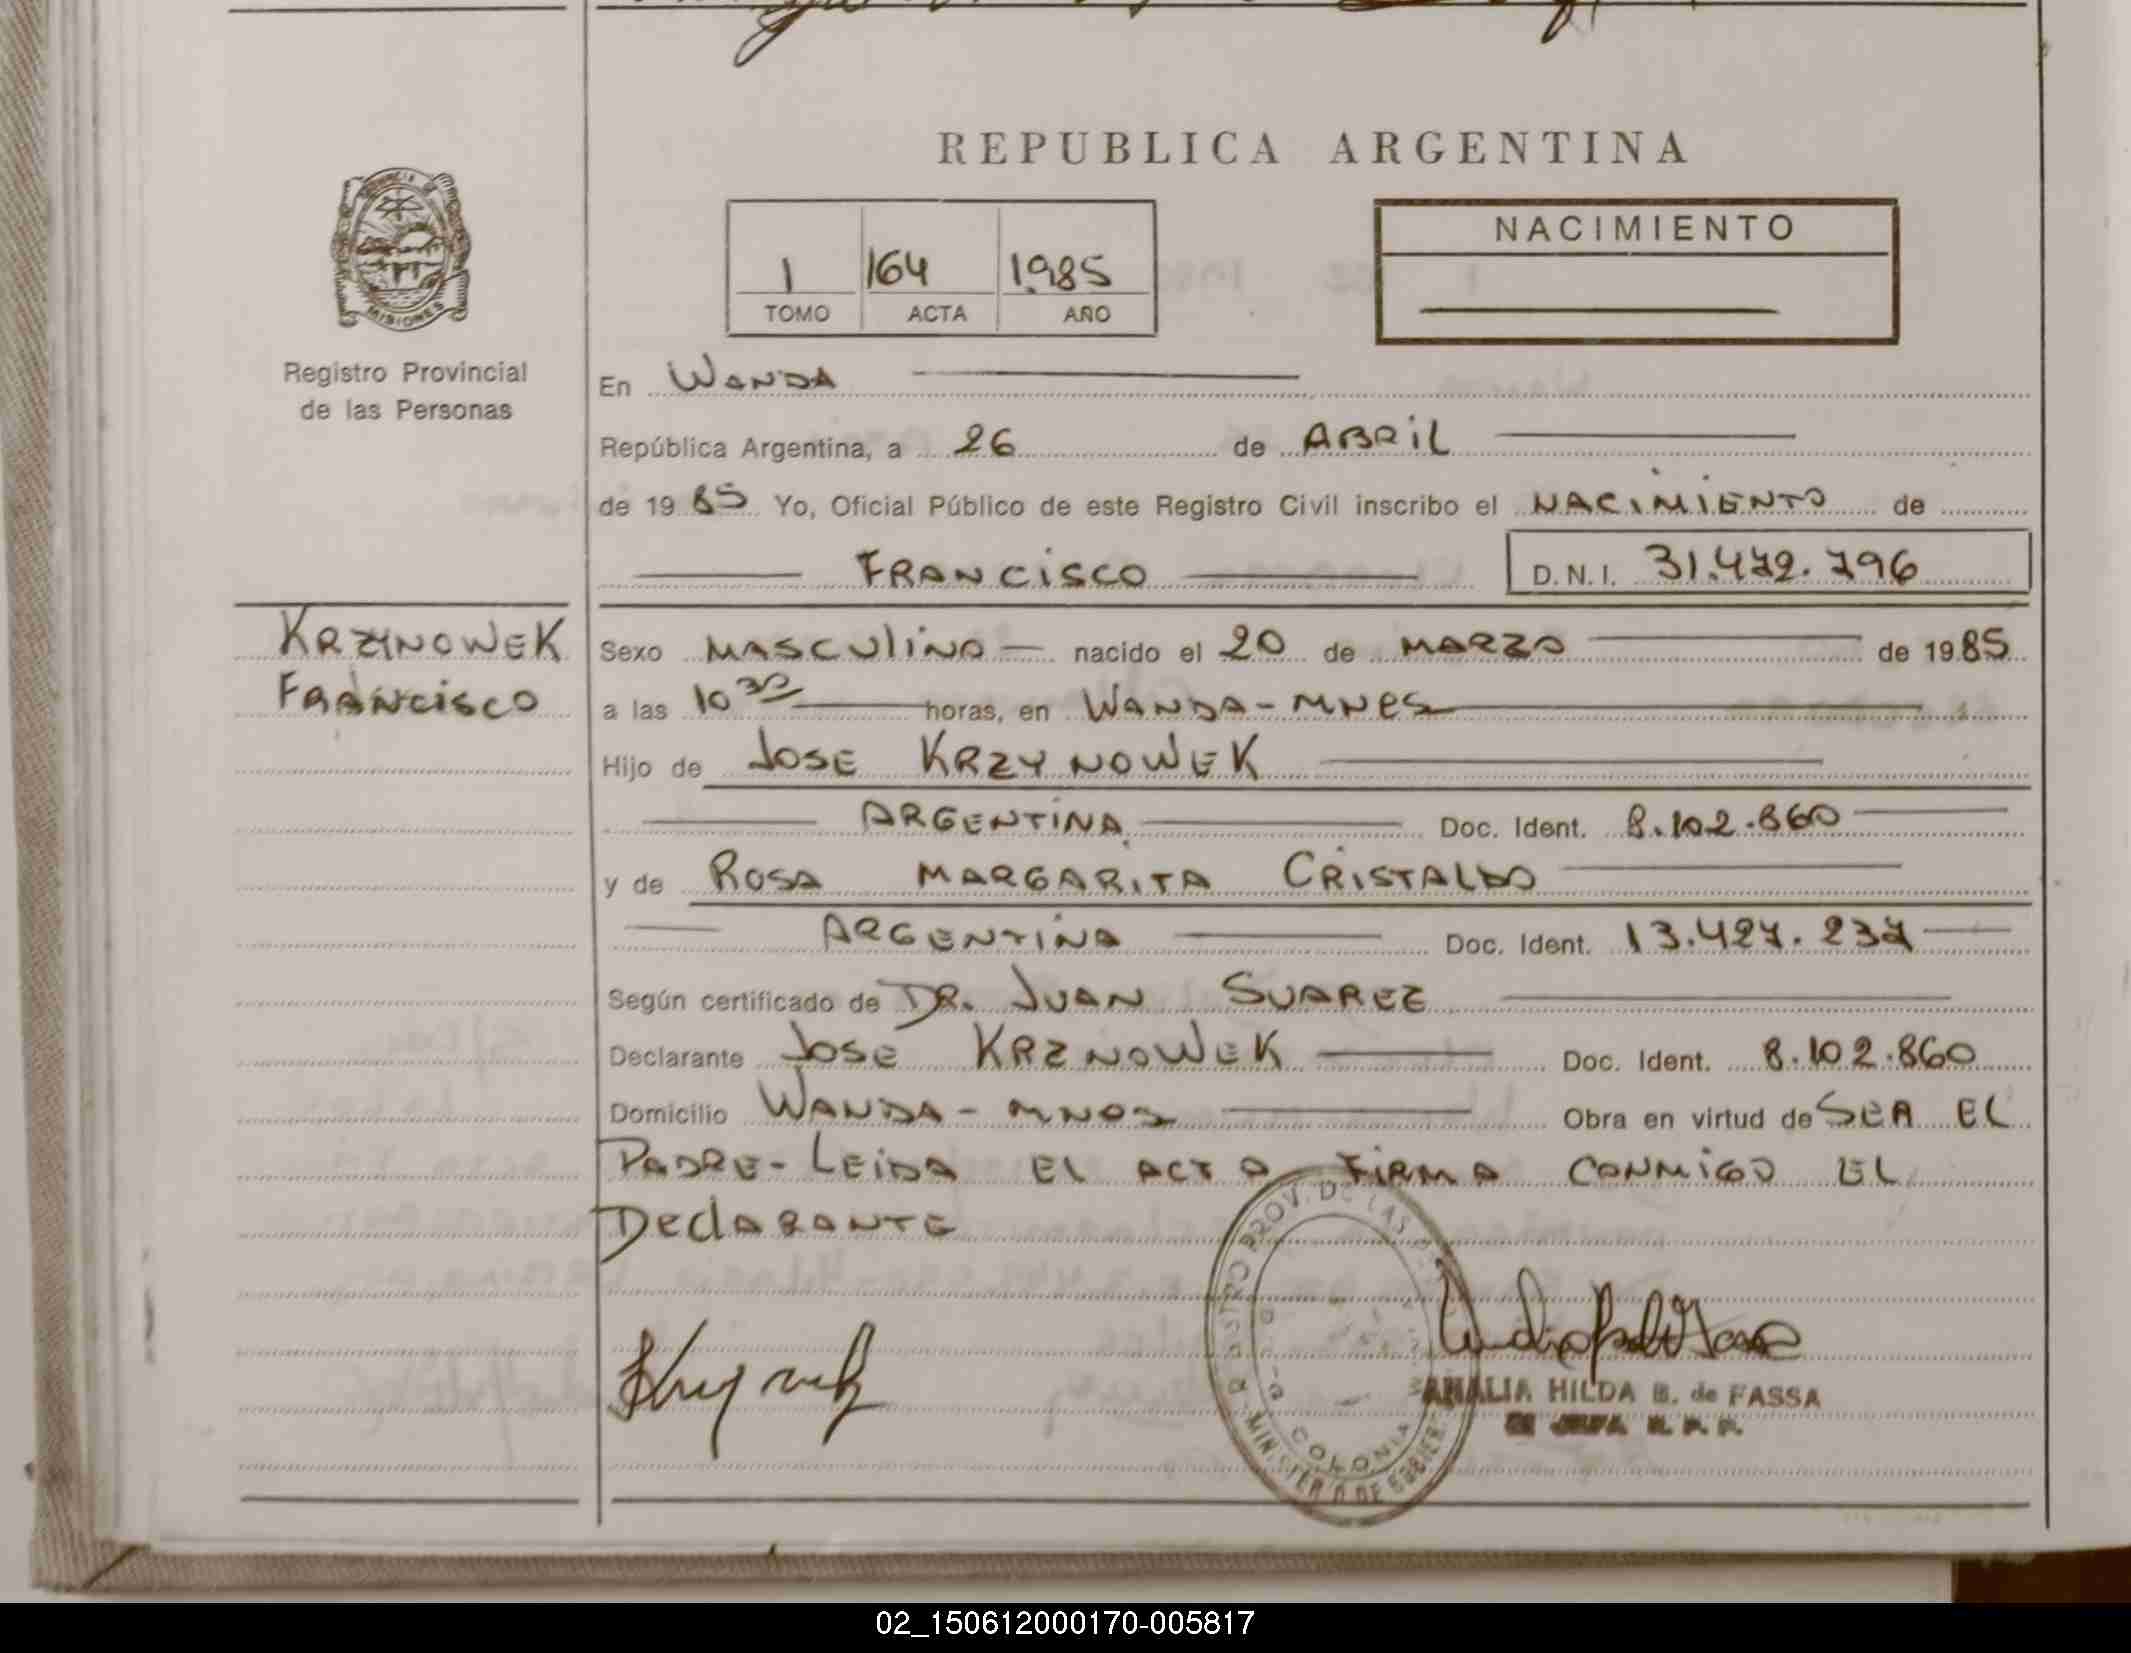 REPUBLICA ARGENTINA
NACIMIENTO
1 164 1985
TOMO ACTA AÑO
MISIONES
Registro Provincial
de las Personas
En WANDA
República Argentina, a 26 de ABRIL
de 1985 Yo, Oficial Público de este Registro Civil inscribo el NACIMIENTO de
FRANCISCO D.N.I. 31.472.796
KRZYNOWEK
FRANCISCO
Sexo MASCULINO nacido el 20 de MARZO de 1985
a las 10 30 horas, en WANDA - MNES
Hijo de JOSE KRZYNOWEK
ARGENTINA Doc. Ident. 8.102.860
y de ROSA MARGARITA CRISTALDO
ARGENTINA Doc. Ident. 13.427.237
Según certificado de DR. JUAN SUAREZ
Declarante JOSE KRZNOWEK Doc. Ident. 8.102.860
Domicilio WANDA - MNES Obra en virtud de SER EL
PADRE - LEIDA EL ACTA FIRMA CONMIGO EL
DECLARANTE
REGISTRO PROV. DE LAS
COLONIA
MINISTERIO DE GOBIER
AMALIA HILDA B. de FASSA
JEFA R. P. P.
02_150612000170-005817